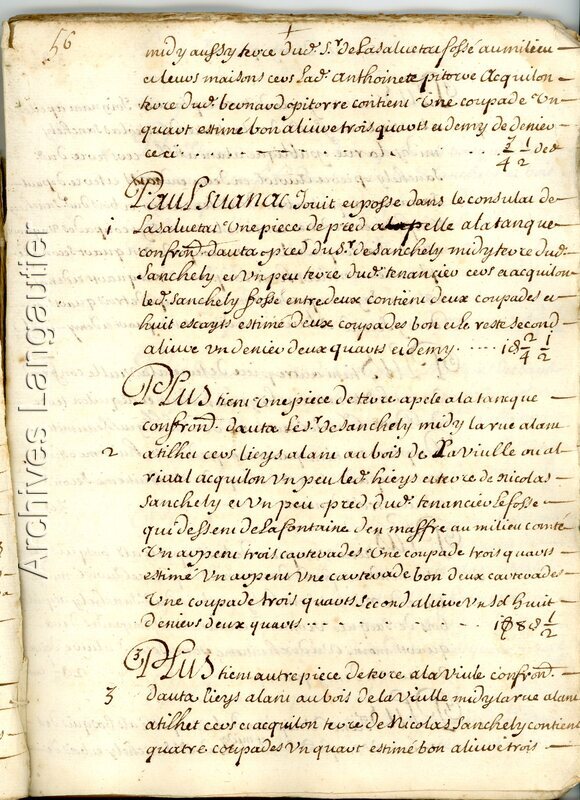 56
midy aussy terre dud. Sr. de Lasalvetat fossé au milieu
et leurs maisons cers lad. Anthoinete pitorre Acquilon
terre dud. bernard pitorre contient Une coupade Un
quart estimé bon alivre trois quarts et demy de denier
ceci . . . . . 3/4 1/2 de d
Paul suanac Jouit et posse dans le consulat de
1 Lasalvetat Une piece de pred apelle a la tanque
confrond. dauta pred du sr. de sanchely midy terre dud.
sanchely et Un peu terre dud. tenancier cers et acquilon
led. sanchely fosse entre deux contient deux coupades et
huit escayts estimé deux coupades bon et le reste second
alivre Un denier deux quarts et demy . . . . . 1 d 2/4 1/2
PLUS tient Une piece de terre apele a la tanque
confrond. dauta le sr. de sanchely midy la rue alant
2 atilhet cers lieys alant au bois de La viulle ou al
rivial acquilon Un peu led. hieys et terre de nicolas
sanchely et Un peu pred dud. tenancier le fosse
qui dessent de La fontaine den maffre au milieu contè
Un arpent trois carterades Une coupade trois quarts
estimé Un arpent Une carterade bon deux carterades
Une coupade trois quarts second alivre Un sd huit
deniers deux quarts . . . . . 1 s 8 d 1/2
3 PLUS tient autre piece de terre a la Viule confrond.
3 dauta lieys alant au bois de la viulle midy la rue alant
atilhet cers et acquilon terre de Nicolas Sanchely contient
quatre coupades Un quart estimé bon alivre trois
Archives Langautier